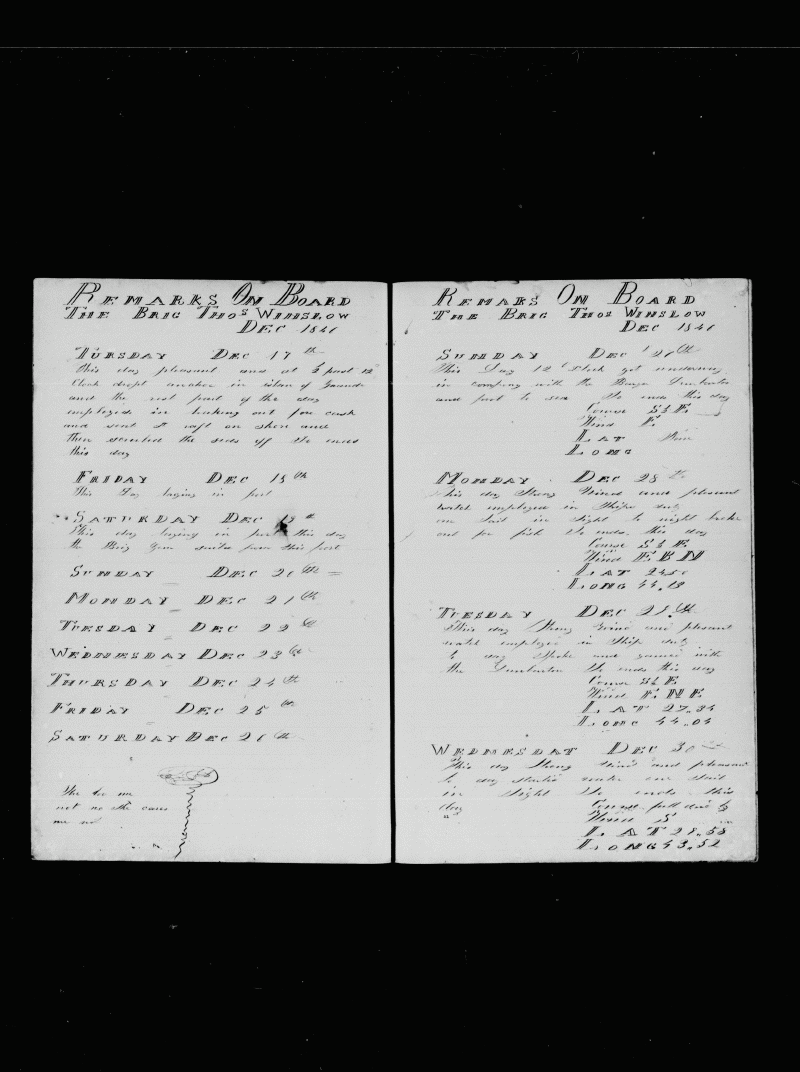 REMARKS ON BOARD
THE BRIG THOS WINSLOW
DEC 1840
TURSDAY DEC 17th
this day pleasant and at ½ past 12
Clock dropt ancker in
and the rest part of the day
employed in braking out for cask
and sent a raft on shore and
then the sids off So ends
this day
FRIDAY DEC 18th
This Day laying in port
SATURDAY DEC
This day laying in port this day
the Brig sailed from this port
SUNDAY DEC 20th
MONDAY DEC 21th
TUESDAY DEC 22th
WEDNESDAY DEC 23th
THURSDAY DEC 24th
FRIDAY DEC 25th
SATURDAY DEC 26th
not no The cares
REMARS ON BOARD
THE BRIG THOS WINSLOW
DEC 1840
SUNDAY DEC 27th
This Day 12 Clock got underway
in company with the
and put to sea So ends this day
Course S½E
Wind E
LAT
LONG
MONDAY DEC 28th
This day Strong Wind and pleasant
watch employed in Ships duty
one Sail in Sight to night broke
out for fish So ends this day
Course S½E
Wind EBN
LAT
LONG 44.18
TUESDAY DEC
This day Strong Wind and pleasant
watch employed in Ship duty
to day Spoke and gamed with
the So ends this day
Course S½E
Wind ENE
LAT 27.34
LONG 44.04
WEDNESDAY DEC 30
This day Strong Wind and pleasant
to day water one Sail
in Sight So ends this
day
Course full and by
Wind S
LAT 28.58
LONG 43.52